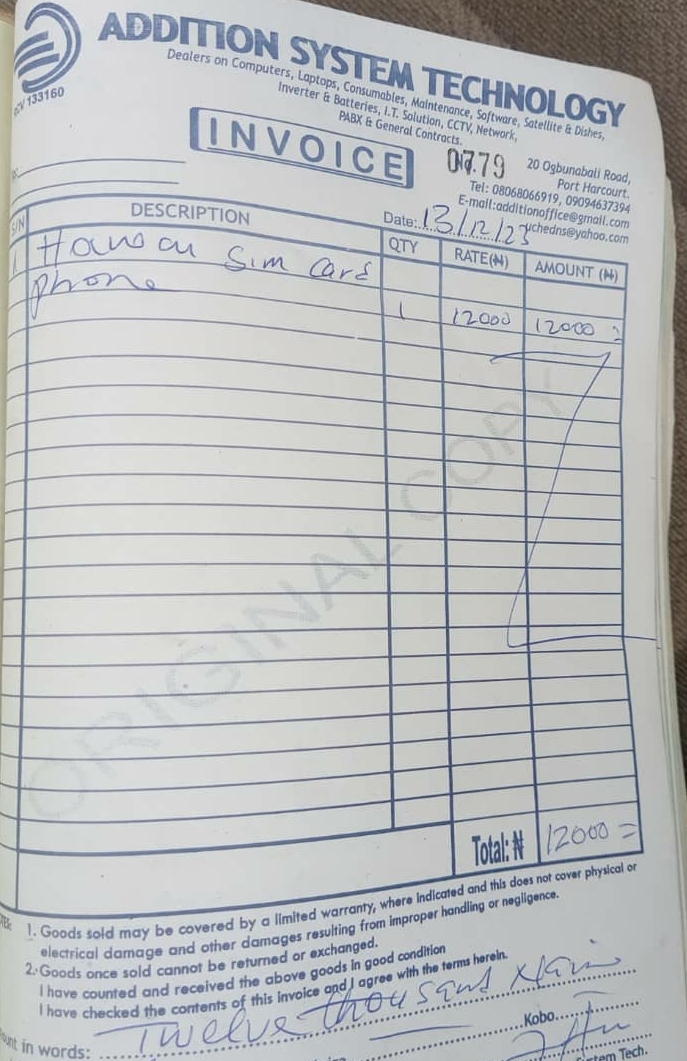 ADDITION SYSTEM TECHNOLOGY
133160
Dealers on Computers, Laptops, Consumables, Maintenance, Software, Satellite & Dishes,
Inverter & Batteries, I.T. Solution, CCTV, Network,
PABX & General Contracts.
INVOICE
0779
20 Ogbunabali Road,
Port Harcourt.
Tel: 08068066919, 09094637394
E-mail:additionoffice@gmail.com
uchedns@yahoo.com
Date: 13/12/25
S/N DESCRIPTION QTY RATE(₦) AMOUNT (₦)
1 Sim Card
phone
1 12000 12000 =
ORIGINAL COPY
Total: ₦ 12000 =
1. Goods sold may be covered by a limited warranty, where indicated and this does not cover physical or
electrical damage and other damages resulting from improper handling or negligence.
2. Goods once sold cannot be returned or exchanged.
I have counted and received the above goods in good condition
I have checked the contents of this invoice and I agree with the terms herein.
in words: Twelve thousand
Kobo
Tech.